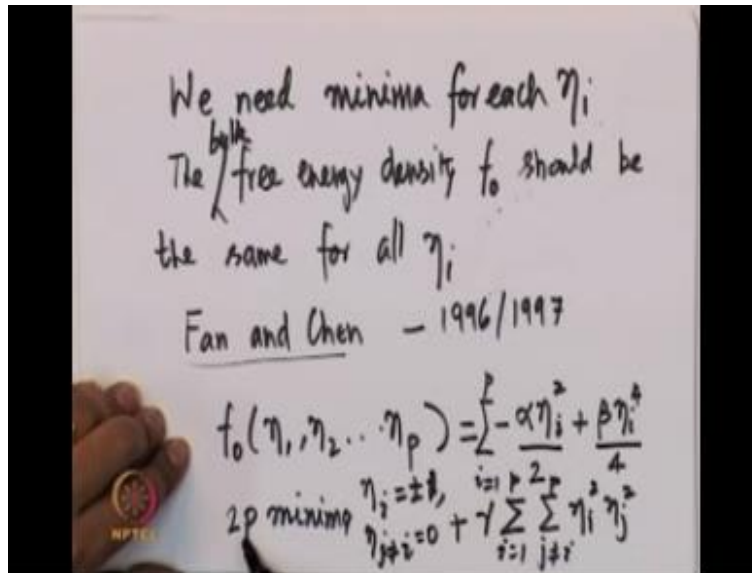 We need minima for each ηi
The bulk free energy density f0 should be
the same for all ηi
Fan and Chen - 1996/1997
f0(η1, η2 ... ηp) = Σ_{i=1}^{p} -αηi²/2 + βηi⁴/4
2p minima ηi = ±1, ηj≠i = 0 + γ Σ_{i=1}^{p} Σ_{j≠i}^{p} ηi² ηj²
NPTEL